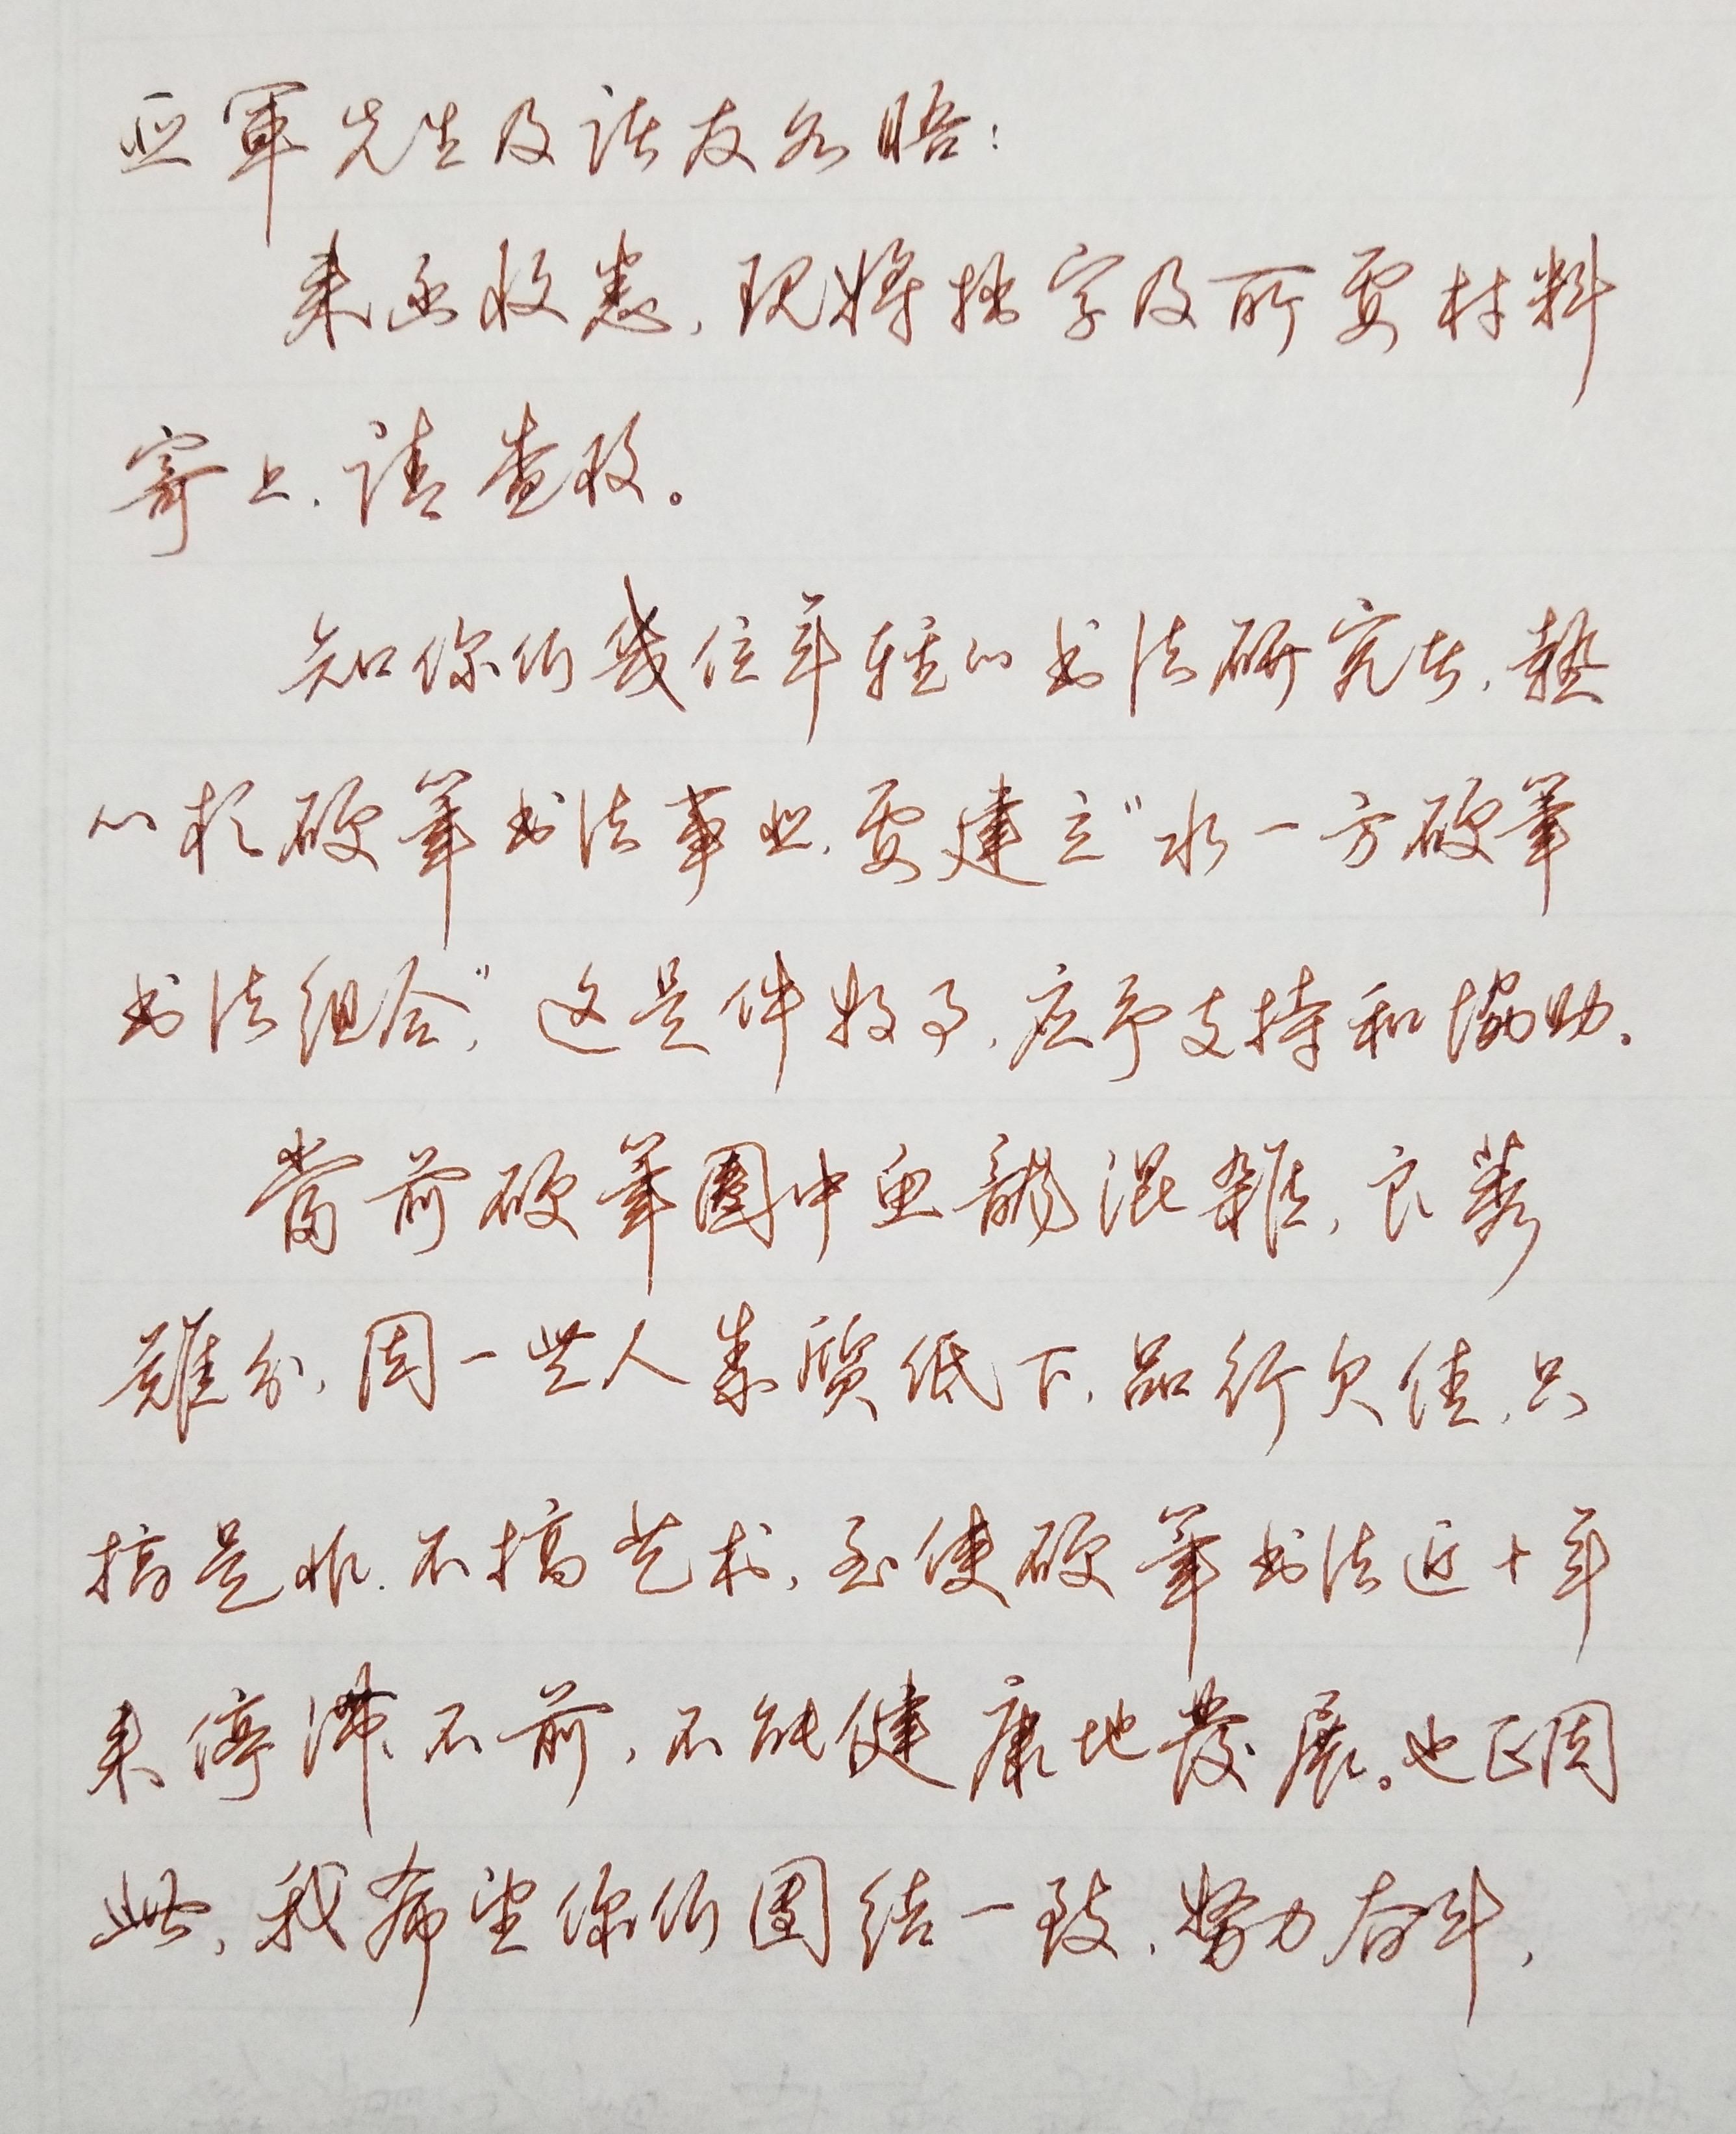 亚軍先生及诸友如晤：
来函收悉，现将拙字及所要材料
寄上，请查收。
知你们幾位年轻的书法研究者，热
心於硬筆书法事业，要建立“水一方硬筆
书法组合”，这是件好事，应予支持和協助。
當前硬筆圈中鱼龍混雜，良莠
難分，因一些人素质低下，品行欠佳，只
搞是非，不搞艺术，至使硬筆书法近十年
来停滞不前，不能健康地發展。也正因
此，我希望你们團结一致，努力奋斗，